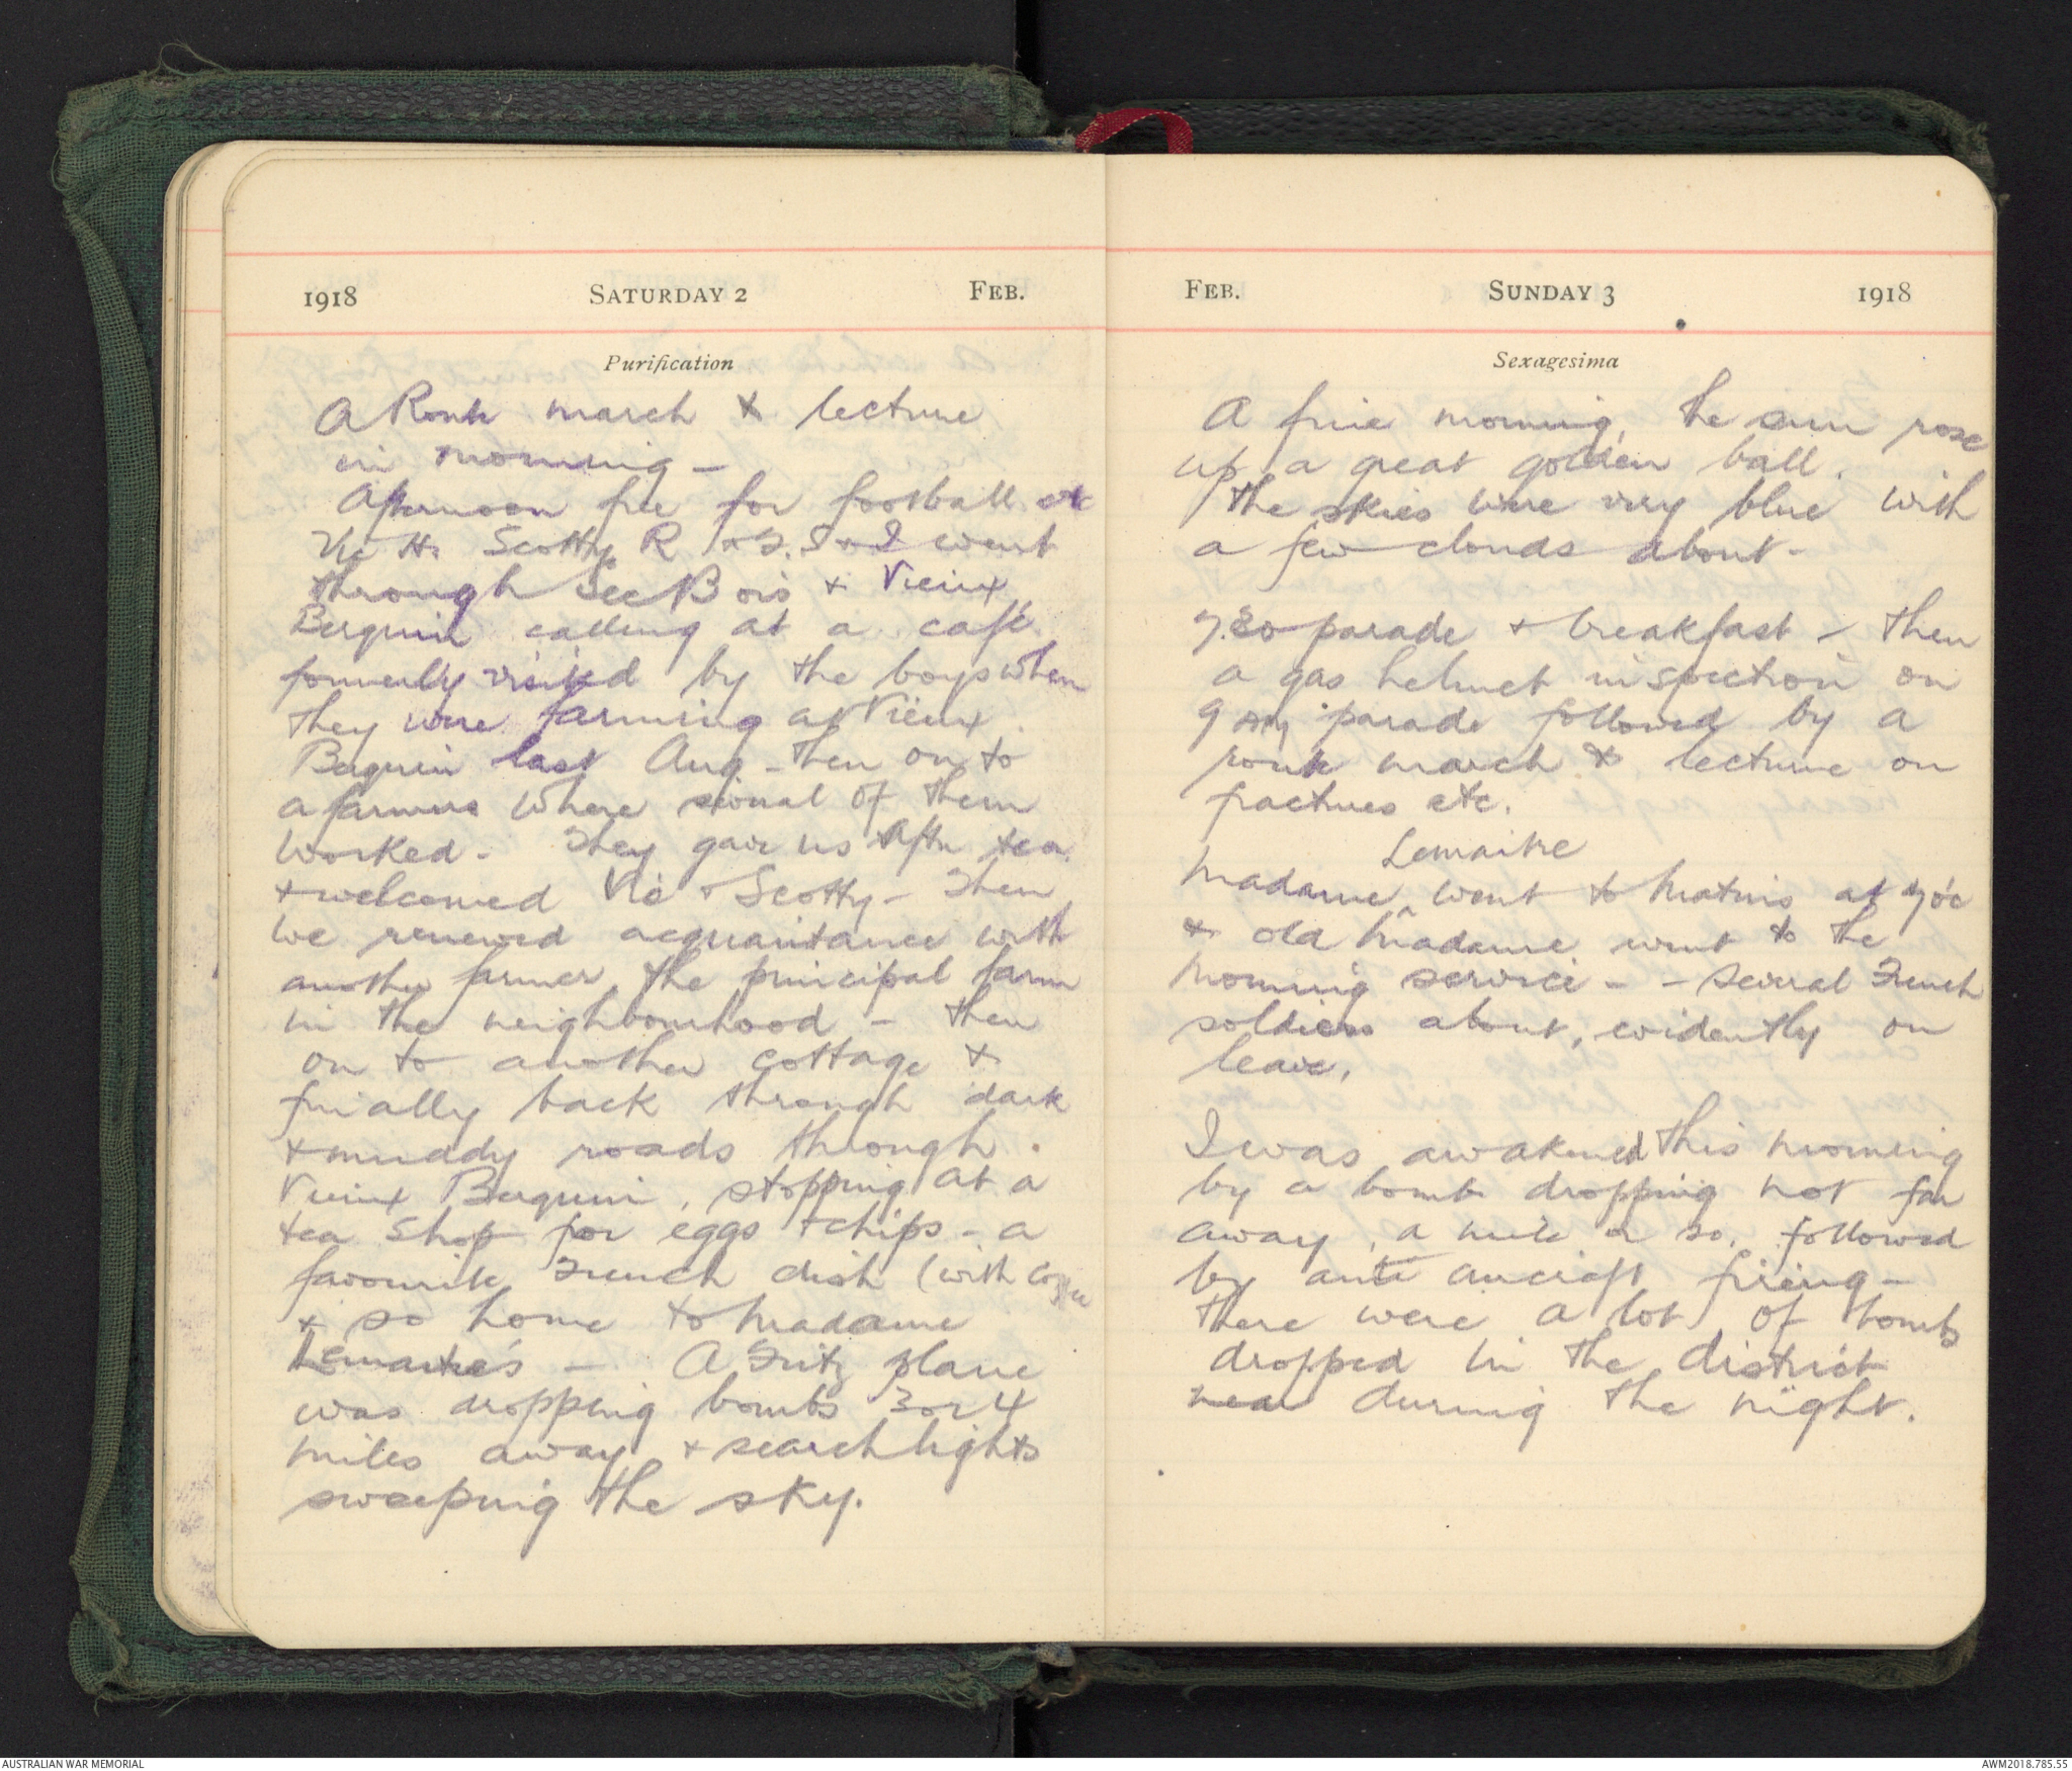 1918 SATURDAY 2 FEB.
Purification
A Route march & lecture
in morning -
Afternoon free for football etc
Vic H. Scotty R & I went
through Sec Bois & Vieux
Berquin calling at a café
formerly visited by the boys when
they were farming at Vieux
Berquin last Aug - then on to
a farmers where several of them
worked. They gave us aftn tea
& welcomed Vic & Scotty - Then
we renewed acquaintance with
another farmer, the principal farm
in the neighbourhood - then
on to another cottage &
finially back through dark
& muddy roads through
Vieux Berquin, stopping at a
tea shop for eggs & chips - a
favourite French dish (with
& so home to Madame
Lemaitre's - A Fritz plane
was dropping bombs 3 or 4
miles away & searchlights
sweeping the sky.
FEB. SUNDAY 3 1918
Sexagesima
A fine morning, the sun rose
up, a great golden ball.
The skies were very blue with
a few clouds about -
7.30 parade & breakfast - then
a gas helmet inspection on
9 am parade followed by a
route march & lecture on
fractures etc.
Lemaitre
Madame ^ went to Matins at 7 oc
& old Madame went to the
morning service - - several French
soldiers about, evidently on
leave.
I was awakened this morning
by a bomb dropping not far
away, a mile or so, followed
by anti aircraft firing -
There were a lot of bombs
dropped in the district
near during the night.
AUSTRALIAN WAR MEMORIAL
AWM2018.785.55